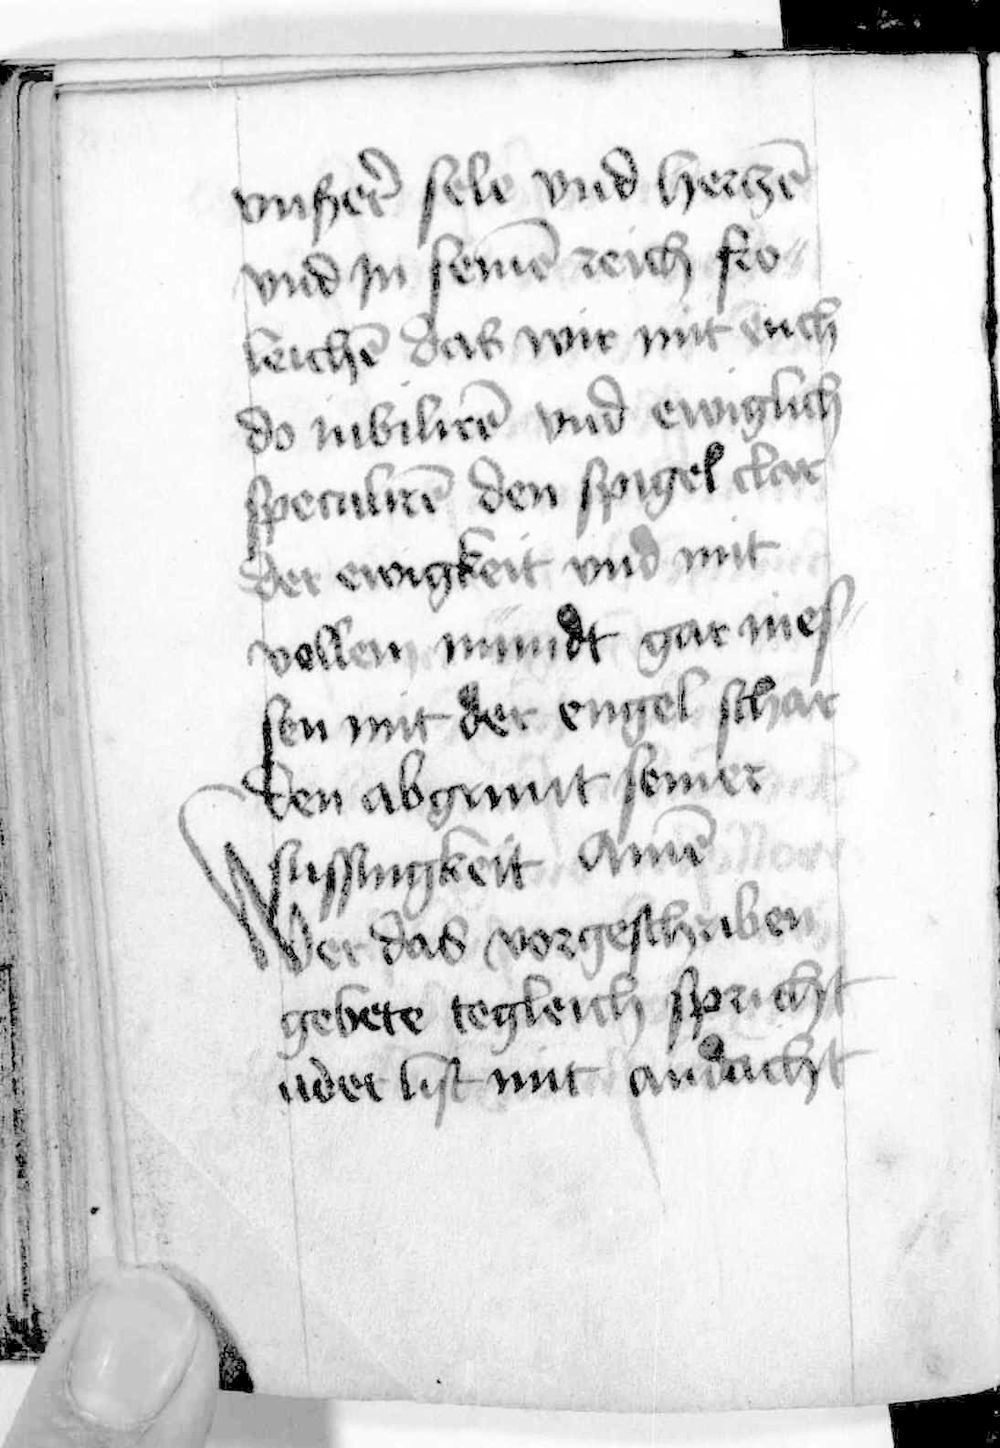 vnsier̄ sele vnd hertzē
vnd in seinē reich fro⸗
leichē das wir mit euch
do iubilirē vnd ewiglich
speculirē den spigel clar
der ewigkeit vnd mit
vollem mundt gar nies⸗
sen mit der engel schar
den abgrunt seiner
sussingkeit Amē
Wer das vorgeschriben
gebete tegleich spricht
ader list mit andacht